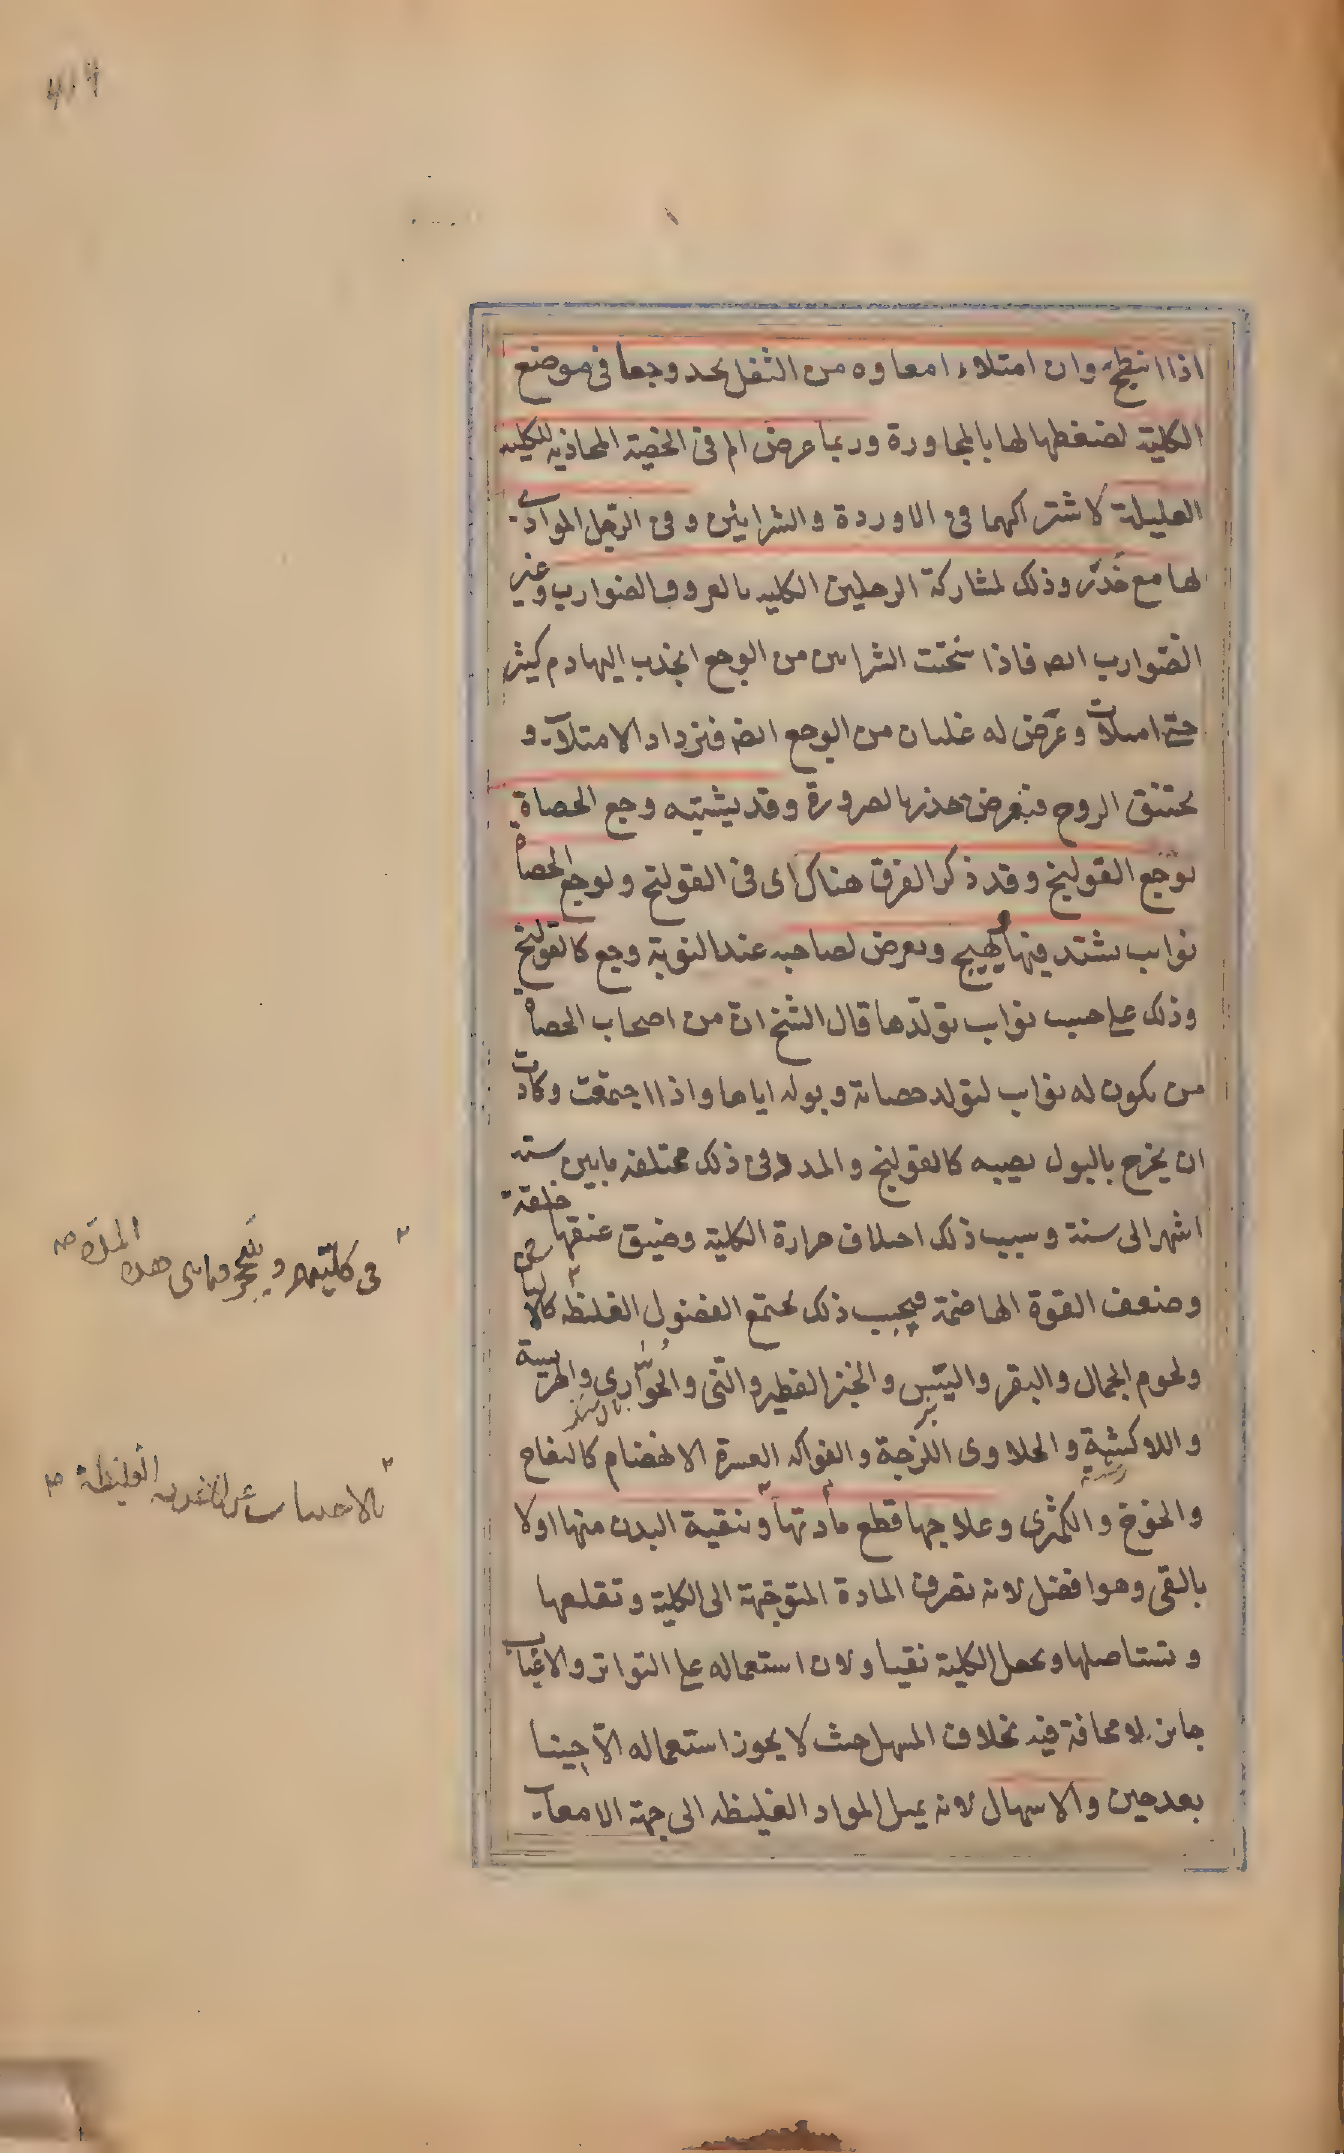 اذا انبطح وان امتلاء امعاوه من الثفل يحد وجعا فى موضع
الكلية لضغطها لها بالمجاورة وربما عرض الم فى الخصية المحاذيه للكلية
العليلة لاشتراكهما فى الاوردة والشرايين وفى الرجل الموازية
لها مع خدر وذلك لمشاركة الرجلين الكليه بالعروق الضوارب وغير
الضوارب ايضا فاذا سخنت الشرايين من الوجع انجذب اليها دم كثير
حتى امتلأت وعرض له غليان من الوجع ايضا فيزداد الامتلاء و
يختنق الروح فيعرض خدر بالضرورة وقد يشتبه وجع الحصاة
بوجع القولنج وقد ذكر الفرق هناك اى فى القولنج ولوجع الحصاة
نوايب يشتد فيها يهيج ويعرض لصاحبه عند النوبة وجع كالقولنج
وذلك على حسب نوايب تولّدها قال الشيخ ان من اصحاب الحصاة
من يكون له نوايب لتولد حصاته وبوله اياها واذا اجتمعت وكادت
ان يخرج بالبول يصيبه كالقولنج والمدد فى ذلك مختلفة ما بين ستة
اشهر الى سنة وسبب ذلك اختلاف حرارة الكلية وضيق عنقها خلقة
وضعف القوة الهاضمة فبحسب ذلك يجتمع الفضول الغليظه كالالبان
ولحوم الجمال والبقر والتيس والخبز الفطير والنى والحوّارى والهريسة
واللاكشية والحلاوى اللزجة والفواكه العسرة الانهضام كالتفاح
والخوخ والكمثرى وعلاجها قطع مادتها وتنقية البدن منها اولا
بالقى وهو افضل لانه يصرف المادة المتوجّهة الى الكلية وتقلعها
وتستاصلها ويجعل الكلية نقيا ولان استعماله على التواتر والاغباب
جايز لا مخافة فيه بخلاف المسهل حيث لا يجوز استعماله الّا حينا
بعد حين والاسهال لانه يميل المواد الغليظه الى جهة الامعاء
فى كليتهم ويتحجر هذه المدّة صح
بالاحتباس عن الاغذيه الغليظة صح